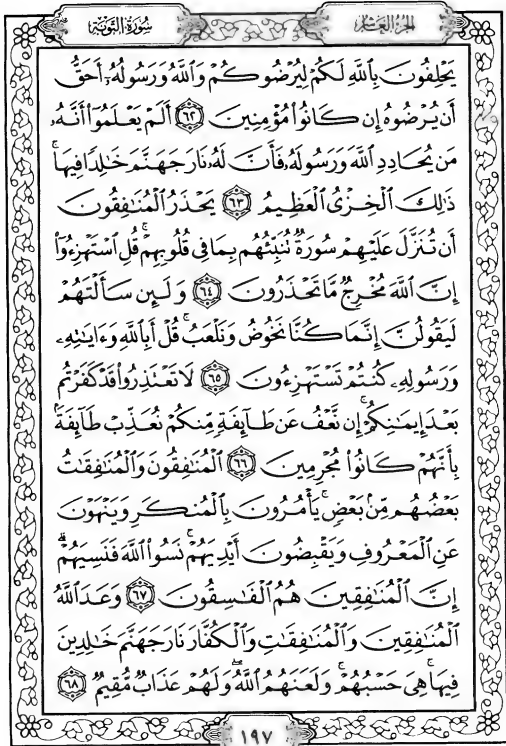 الجزء العاشر
سورة التوبة
يَحْلِفُونَ بِاللَّهِ لَكُمْ لِيُرْضُوكُمْ وَاللَّهُ وَرَسُولُهُۥٓ أَحَقُّ
أَن يُرْضُوهُ إِن كَانُوا۟ مُؤْمِنِينَ ﴿٦٢﴾ أَلَمْ يَعْلَمُوٓا۟ أَنَّهُۥ
مَن يُحَادِدِ اللَّهَ وَرَسُولَهُۥ فَأَنَّ لَهُۥ نَارَ جَهَنَّمَ خَٰلِدًا فِيهَا ۚ
ذَٰلِكَ الْخِزْىُ الْعَظِيمُ ﴿٦٣﴾ يَحْذَرُ الْمُنَٰفِقُونَ
أَن تُنَزَّلَ عَلَيْهِمْ سُورَةٌ تُنَبِّئُهُم بِمَا فِى قُلُوبِهِمْ ۚ قُلِ اسْتَهْزِءُوٓا۟
إِنَّ اللَّهَ مُخْرِجٌ مَّا تَحْذَرُونَ ﴿٦٤﴾ وَلَئِن سَأَلْتَهُمْ
لَيَقُولُنَّ إِنَّمَا كُنَّا نَخُوضُ وَنَلْعَبُ ۚ قُلْ أَبِاللَّهِ وَءَايَٰتِهِۦ
وَرَسُولِهِۦ كُنتُمْ تَسْتَهْزِءُونَ ﴿٦٥﴾ لَا تَعْتَذِرُوا۟ قَدْ كَفَرْتُم
بَعْدَ إِيمَٰنِكُمْ ۚ إِن نَّعْفُ عَن طَآئِفَةٍ مِّنكُمْ نُعَذِّبْ طَآئِفَةًۢ
بِأَنَّهُمْ كَانُوا۟ مُجْرِمِينَ ﴿٦٦﴾ الْمُنَٰفِقُونَ وَالْمُنَٰفِقَٰتُ
بَعْضُهُم مِّنۢ بَعْضٍ ۚ يَأْمُرُونَ بِالْمُنكَرِ وَيَنْهَوْنَ
عَنِ الْمَعْرُوفِ وَيَقْبِضُونَ أَيْدِيَهُمْ ۚ نَسُوا۟ اللَّهَ فَنَسِيَهُمْ ۗ
إِنَّ الْمُنَٰفِقِينَ هُمُ الْفَٰسِقُونَ ﴿٦٧﴾ وَعَدَ اللَّهُ
الْمُنَٰفِقِينَ وَالْمُنَٰفِقَٰتِ وَالْكُفَّارَ نَارَ جَهَنَّمَ خَٰلِدِينَ
فِيهَا ۚ هِىَ حَسْبُهُمْ ۚ وَلَعَنَهُمُ اللَّهُ ۖ وَلَهُمْ عَذَابٌ مُّقِيمٌ ﴿٦٨﴾
١٩٧